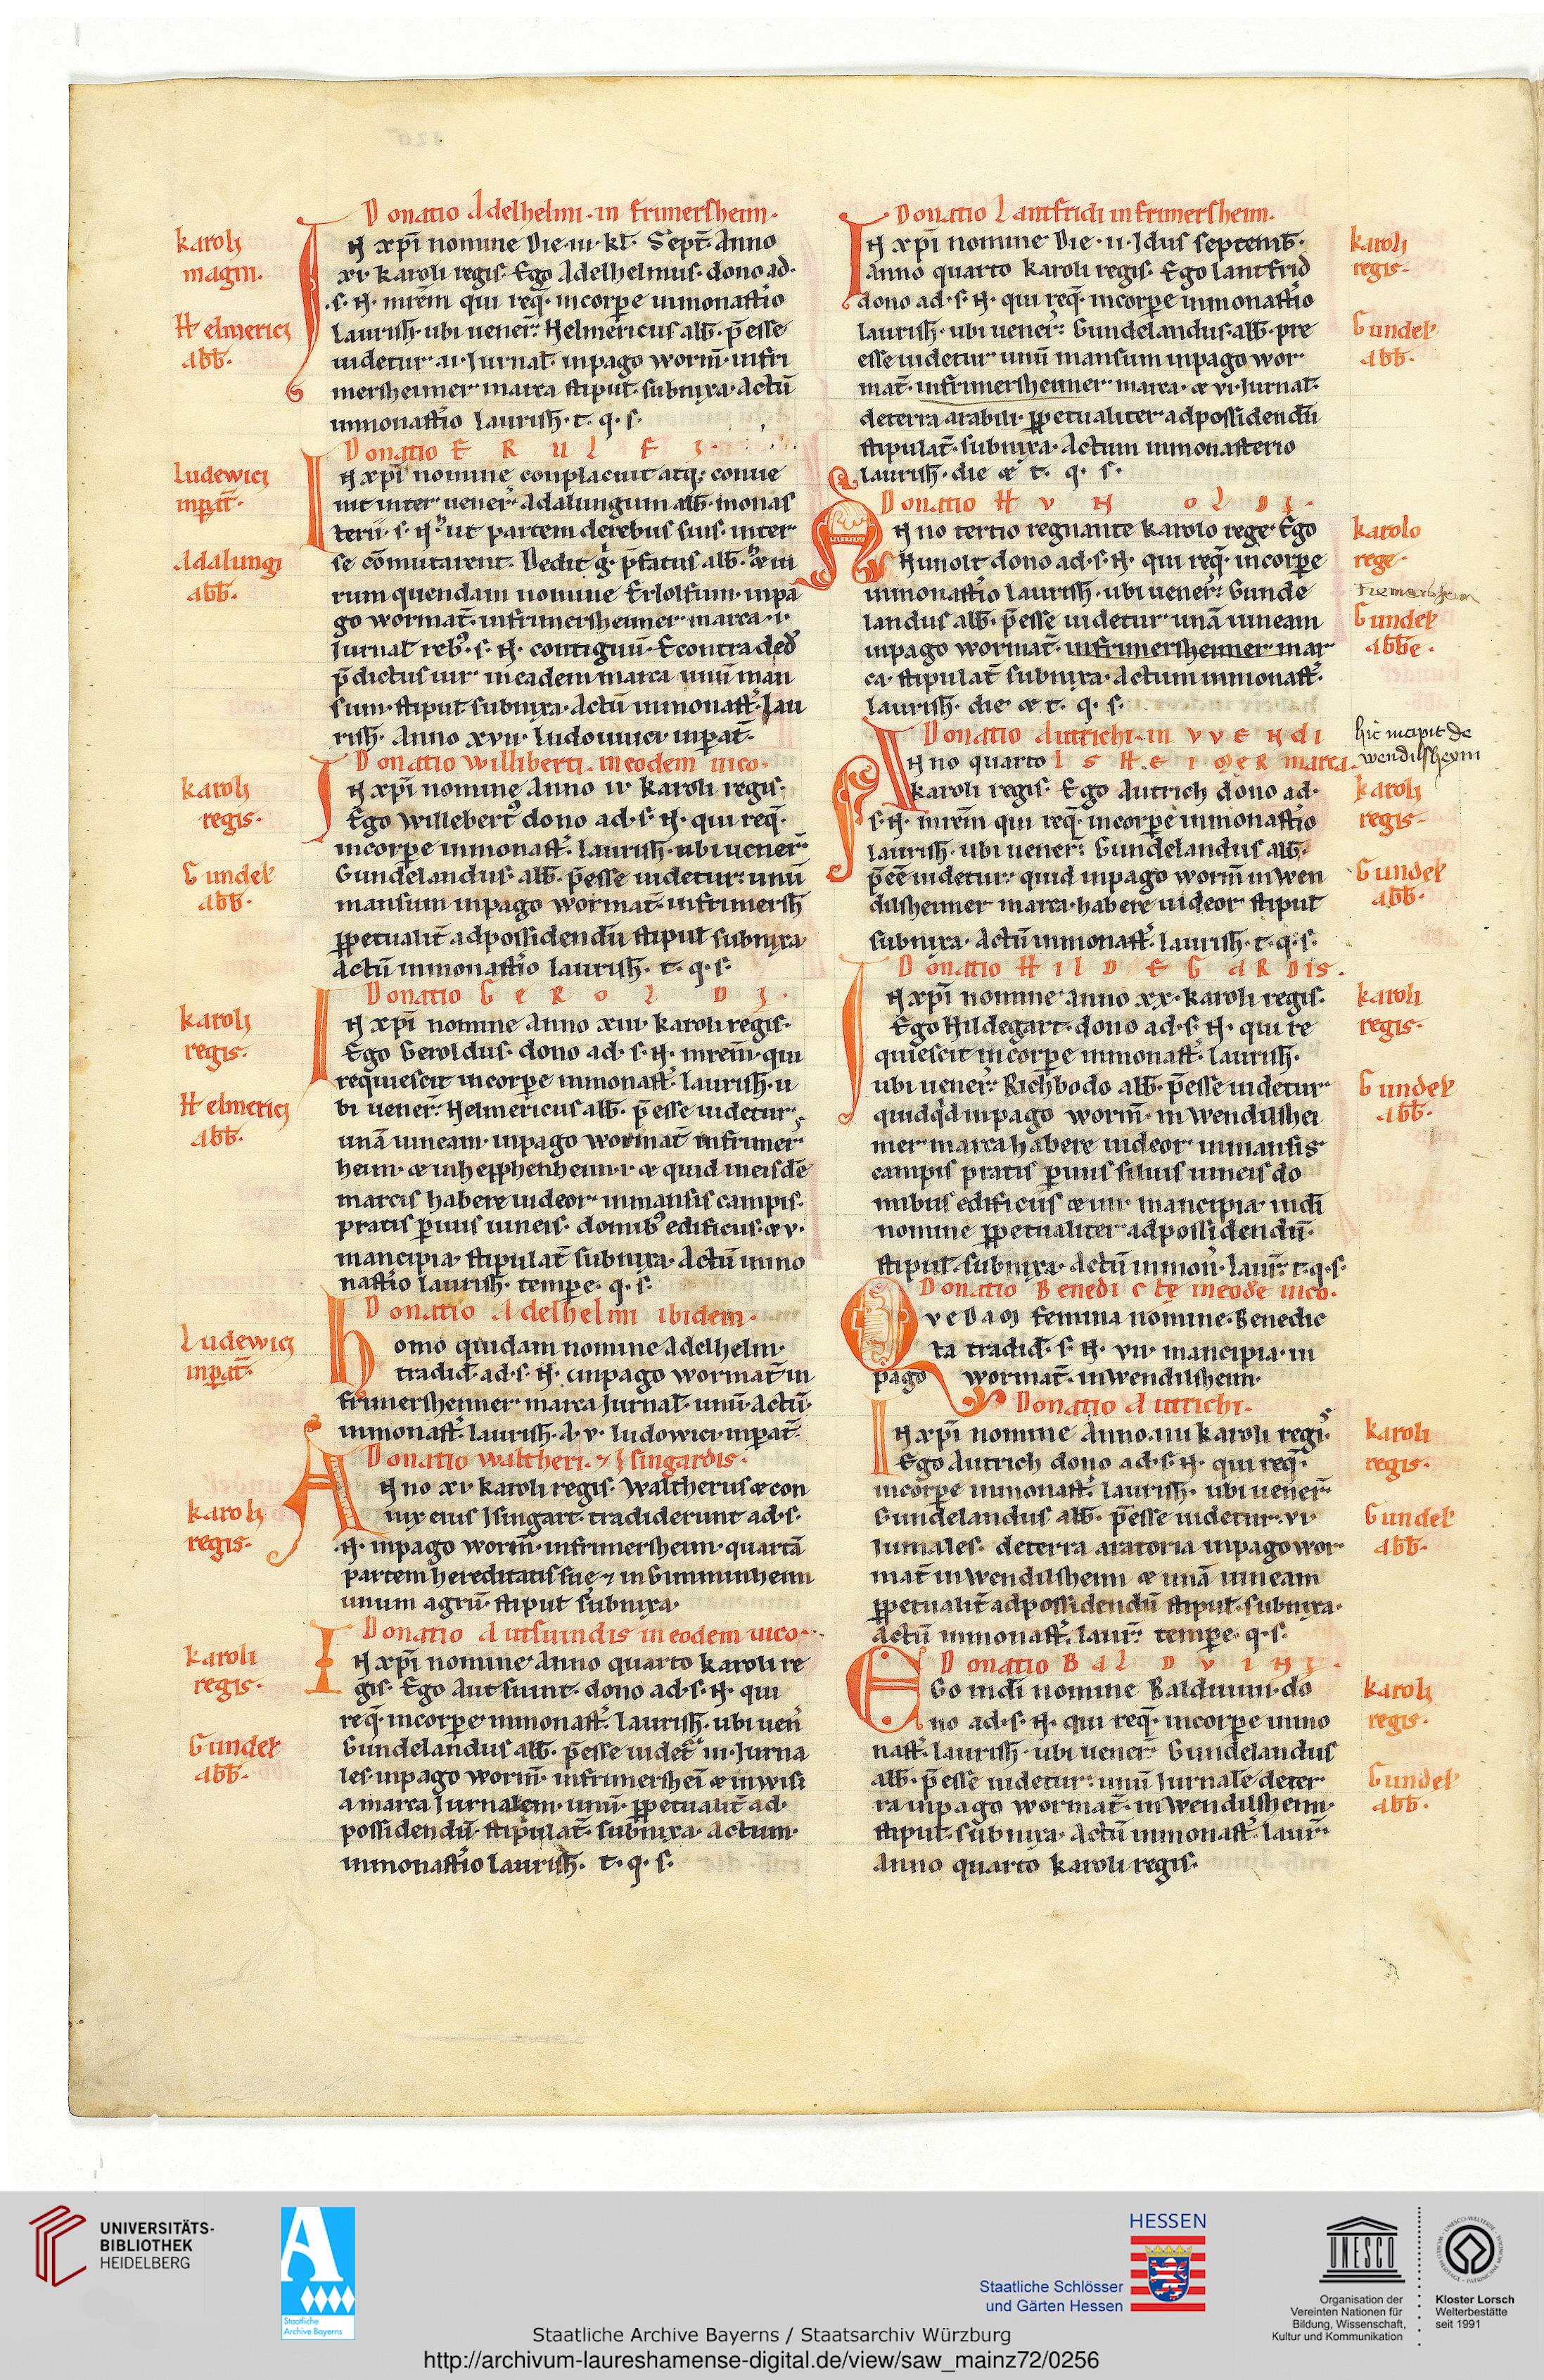 Donatio Adelhelmi·in frimersheim·
karoli
magni·
IN xpī nomine Die·iii·kł· Sept̄· Anno
xi· karoli regis· Ego Adelhelmus· dono ad·
·s·N· m̄rem̄ qui req̄· incorp̱e inmonast̄io
Helmerici
abb̄·
laurish̄·ubi uener̄: helmericus abb̄· p̄esse
uidetur·ii·Jurnał· inpago worm̄·infri
mersheimer marca stipuł· subnixa· Actū
inmonast̄io laurish̄· t· q· s·
Donatio ERULFI·
Ludewici
inp̱at̄·
IN xpī nomine conplacuit atq; conue
nit inter uener̄ adalungum abb̄· monas
terii· s· N· ut partem derebus suis· inter
Adalungi
abb̄·
se cōmutarent· Dedit g̊· p̄fatus abb̄· æ in
rum quendam nomine Erlolfum· inpa
go wormat̄· infrimersheimer marca· i·
Jurnał reb9· s· N· contiguū· Econtra ded̄
p̄dictus uir in eadem marca unū man
sum· stipuł subnixa· Actū inmonast̄· lau
rish̄· Anno xvii· ludouuici inp̱at̄·
Donatio williberti· in eodem uico·
karoli
regis·
IN xpī nomine Anno iv karoli regis·
Ego willebert9 dono ad·s·N· qui req̄·
incorp̱e inmonast̄· laurish̄· ubi uener̄
Gundel̄
abb̄·
Gundelandus· abb̄· p̄esse uidetur: unū
mansum inpago wormat̄· infrimersh̄
p̱petualit̄ adpossidendū stipuł subnixa
Actū inmonast̄io laurish̄· t· q· s·
Donatio GEROLDI·
karoli
regis·
IN xpī nomine Anno xiii· karoli regis·
Ego Geroldus· dono ad· s· N· m̄rem̄· qui
requiescit incorp̱e inmonast̄· laurish̄· u
Helmerici
abb̄·
bi uener̄: helmericus abb̄· p̄esse uidetur·
unā uineam· inpago wormat̄ infrimers
heim· æ inhepphenheim· æ quid ineisdē
marcis habere uideor· inmansis campis·
pratis p̱uiis uineis· domib9 edificiis· æ v·
mancipia· stipulat̄ subnixa· Actū inmo
nast̄io laurish̄· temp̱e· q· s·
Donatio Adelhelmi ibidem·
Ludewici
inp̱at̄·
homo quidam nomine Adelhelm·
tradid̄· ad·s·N· inpago wormat̄ in
frimersheimer marca Jurnał· unū· Actū·
inmonast̄· laurish̄· A·v· ludowici inp̱at̄·
Donatio waltheri· ⁊ Jsingardis·
karoli
regis·
ANno xi· karoli regis· waltherus æ con
iux eius Jsingart· tradiderunt ad·s·
·N· inpago worm̄· infrimersheim· quartā
partem hereditatis suę ⁊ in Gimminheim
unum agrū· stipuł subnixa·
Donatio Autsuindis in eodem uico·
karoli
regis·
IN xpī nomine Anno quarto karoli re
gis· Ego Autsuint· dono ad·s·N· qui
req̄· incorp̱e inmonast̄· laurish̄· ubi uen̄
Gundel̄
abb̄·
Gundelandus abb̄· p̄esse uidet̄ iii· Jurna
les· inpago worm̄· infrimersheī æ inwisi
a marca Jurnalem· unū· p̱petualit̄ ad·
possidendū· stipulat̄· subnixa· Actum·
inmonast̄io laurish̄· t· q· s·
Donatio Lantfridi in frimersheim·
karoli
regis·
IN xpī nomine Die·ii·Jdus septemb̄·
Anno quarto karoli regis· Ego lantfrid
dono ad·s·N· qui req̄· incorp̱e inmonast̄io
Gundel̄
abb̄·
laurish̄· ubi uener̄: Gundelandus abb̄· pre
esse uidetur unū mansum inpago wor
mat̄· infrimersheimer marca· æ vi·Jurnał·
deterra arabili· p̱petualiter adpossidendū
stipulat̄· subnixa· Actum inmonasterio
laurish̄· die æ t· q· s·
Donatio HVNOLDI·
karolo
rege·
ANno tertio regnante karolo rege· Ego
hunolt dono ad·s·N· qui req̄· incorp̱e
Fremersheim
inmonast̄io laurish̄· ubi uener̄: Gunde
Gundel̄
abbe·
landus abb̄· p̄esse uidetur unā uineam
inpago wormat̄· infrimersheimer mar
ca· stipulat̄ subnixa· Actum inmonast̄·
laurish̄· die æ t· q· s·
Donatio Autrichi· in VVENDI
LSHEIMER marca·
hic incipit de
wendilsheym
ANno quarto
karoli
regis·
karoli regis· Ego Autrich dono ad·
s·N· m̄rem̄ qui req̄· incorp̱e inmonast̄io
laurish̄· ubi uener̄: Gundelandus abb̄·
Gundel̄
abb̄·
p̄eē uidetur: quid inpago worm̄ in wen
dilsheimer marca· habere uideor stipuł
subnixa· Actū inmonast̄· laurish̄· t·q·s·
Donatio HILDEGARDIS·
karoli
regis·
IN xpī nomine anno xx· karoli regis·
Ego Hildegart· dono ad·s·N· qui re
quiescit incorp̱e inmonast̄· laurish̄·
Gundel̄
abb̄·
ubi uener̄: Richbodo abb̄· p̄esse uidetur
quidqd inpago worm̄· in wendilshei
mer marca habere uideor inmansis
campis pratis p̱uiis siluis uineis do
mibus edificiis æ iiii· mancipia· indī
nomine p̱petualiter adpossidendū·
stipuł subnixa· Actū inmon̄· laur̄: t·q·s·
Donatio Benedicte in eodē uico·
QVEDAM femina nomine· Benedic
ta tradid̄· s· N· vii· mancipia· in
pago wormat̄· in wendilsheim·
Donatio Autrichi·
karoli
regis·
IN xpī nomine Anno·iiii karoli regis·
Ego Autrich dono ad·s·N· qui req̄·
incorp̱e inmonast̄· laurish̄· ubi uener̄
Gundel̄
abb̄·
Gundelandus abb̄· p̄esse uidetur· vi·
Jurnales· deterra aratoria inpago wor
mat̄ in wendilsheim æ unā uineam
p̱petualit̄ adpossidendū stipuł· subnixa·
Actū inmonast̄· laur̄: temp̱e· q·s·
Donatio BALDVINI·
karoli
regis·
EGo indī nomine Balduuin· do
no ad·s·N· qui req̄· incorp̱e inmo
nast̄· laurish̄· ubi uener̄: Gundelandus
Gundel̄
abb̄·
abb̄· p̄esse uidetur: unū Jurnale deter
ra inpago wormat̄· in wendilsheim·
stipuł· subnixa· Actū inmonast̄· laur̄·
Anno quarto karoli regis·
UNIVERSITÄTS-
BIBLIOTHEK
HEIDELBERG
Staatliche
Archive Bayerns
HESSEN
Staatliche Schlösser
und Gärten Hessen
UNESCO
Organisation der
Vereinten Nationen für
Bildung, Wissenschaft,
Kultur und Kommunikation
Kloster Lorsch
Welterbestätte
seit 1991
Staatliche Archive Bayerns / Staatsarchiv Würzburg
http://archivum-laureshamense-digital.de/view/saw_mainz72/0256